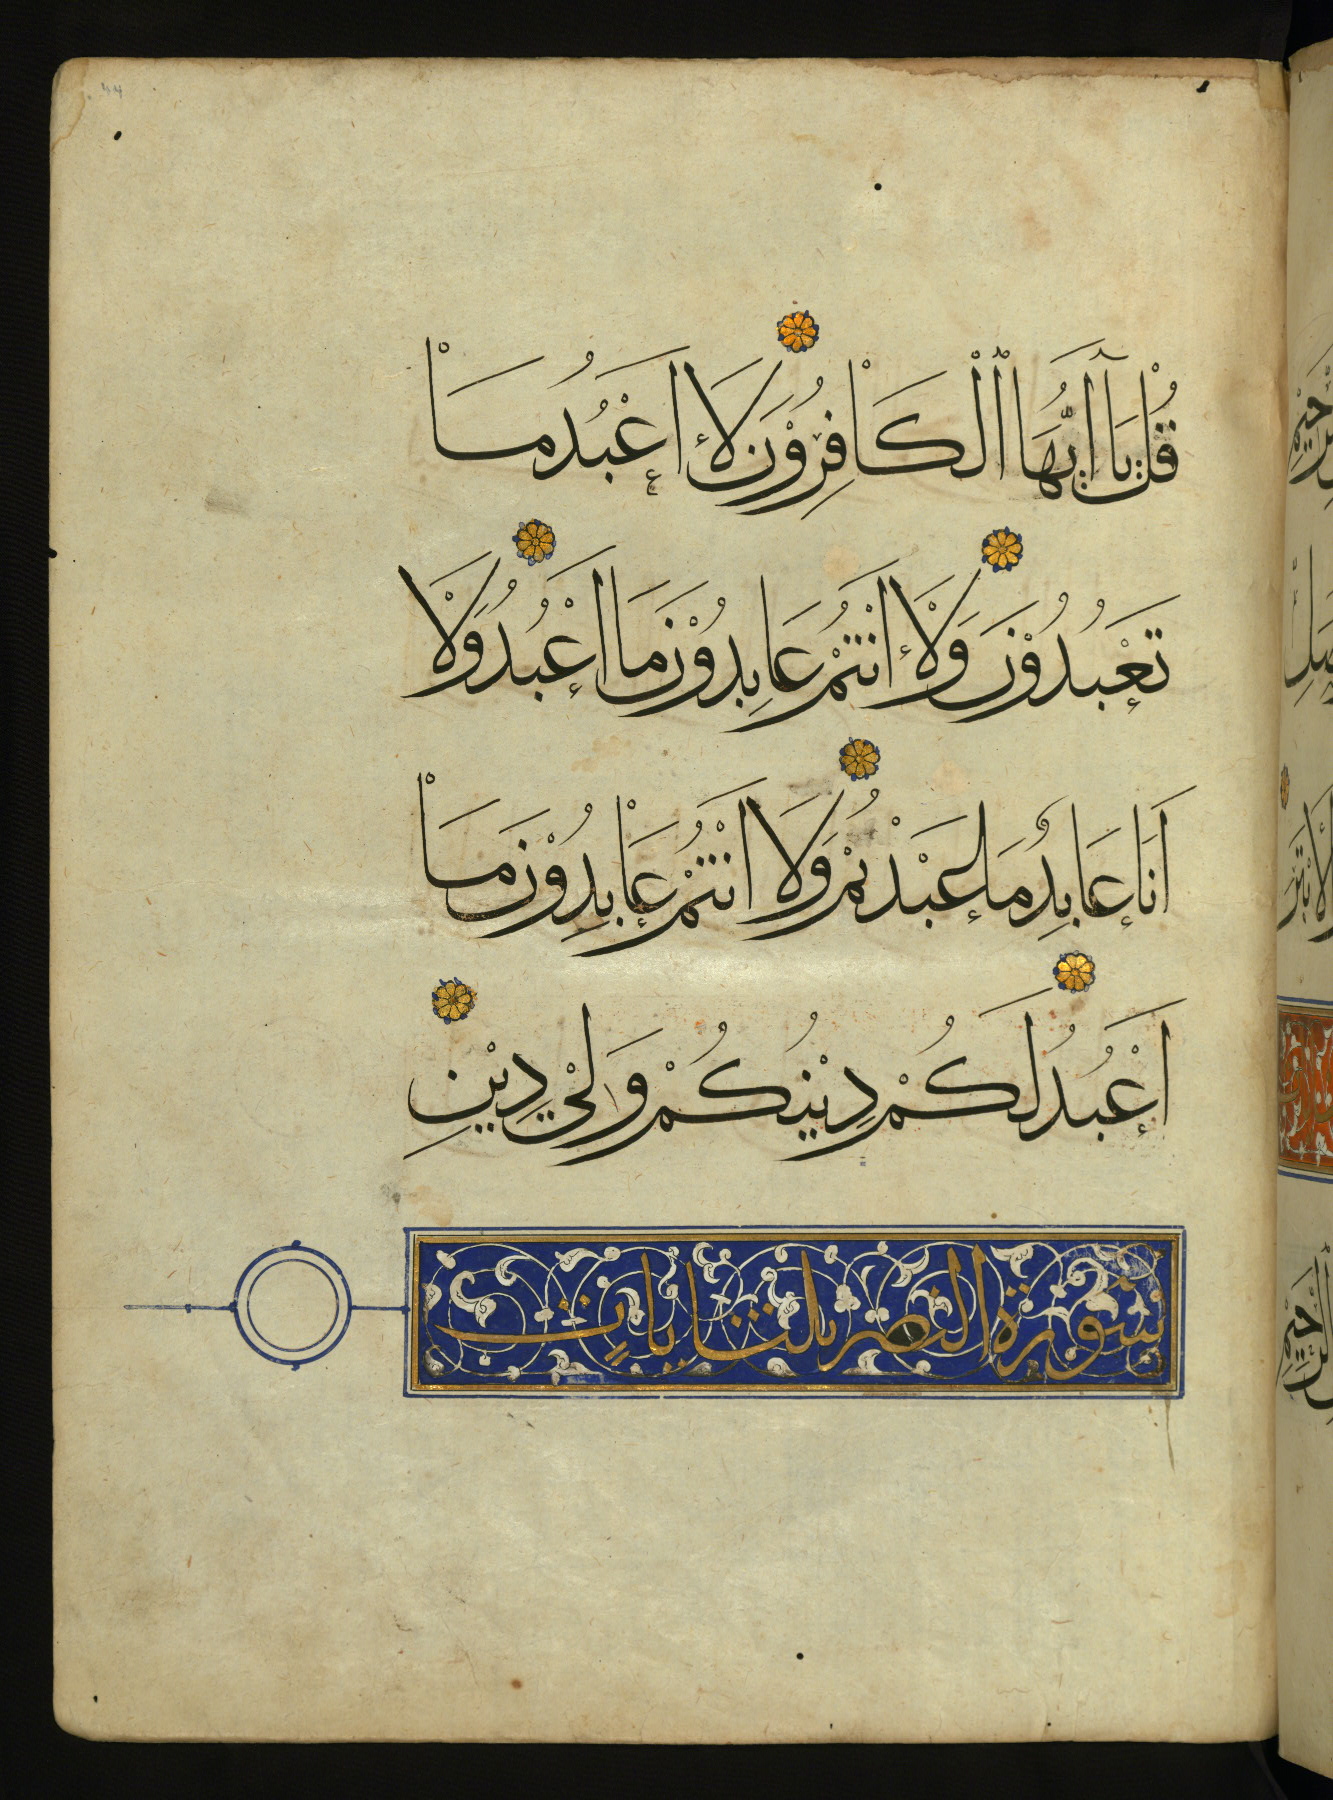 قُلْ يَا اَيُّهَا الْكَافِرُوْنَ لَا اَعْبُدُ مَا
تَعْبُدُوْنَ وَلَا اَنْتُمْ عَابِدُوْنَ مَا اَعْبُدُ وَلَا
اَنَا عَابِدٌ مَا عَبَدْتُمْ وَلَا اَنْتُمْ عَابِدُوْنَ مَا
اَعْبُدُ لَكُمْ دِيْنُكُمْ وَلِيْ دِيْنِ
سورة النصر ثلث ايات